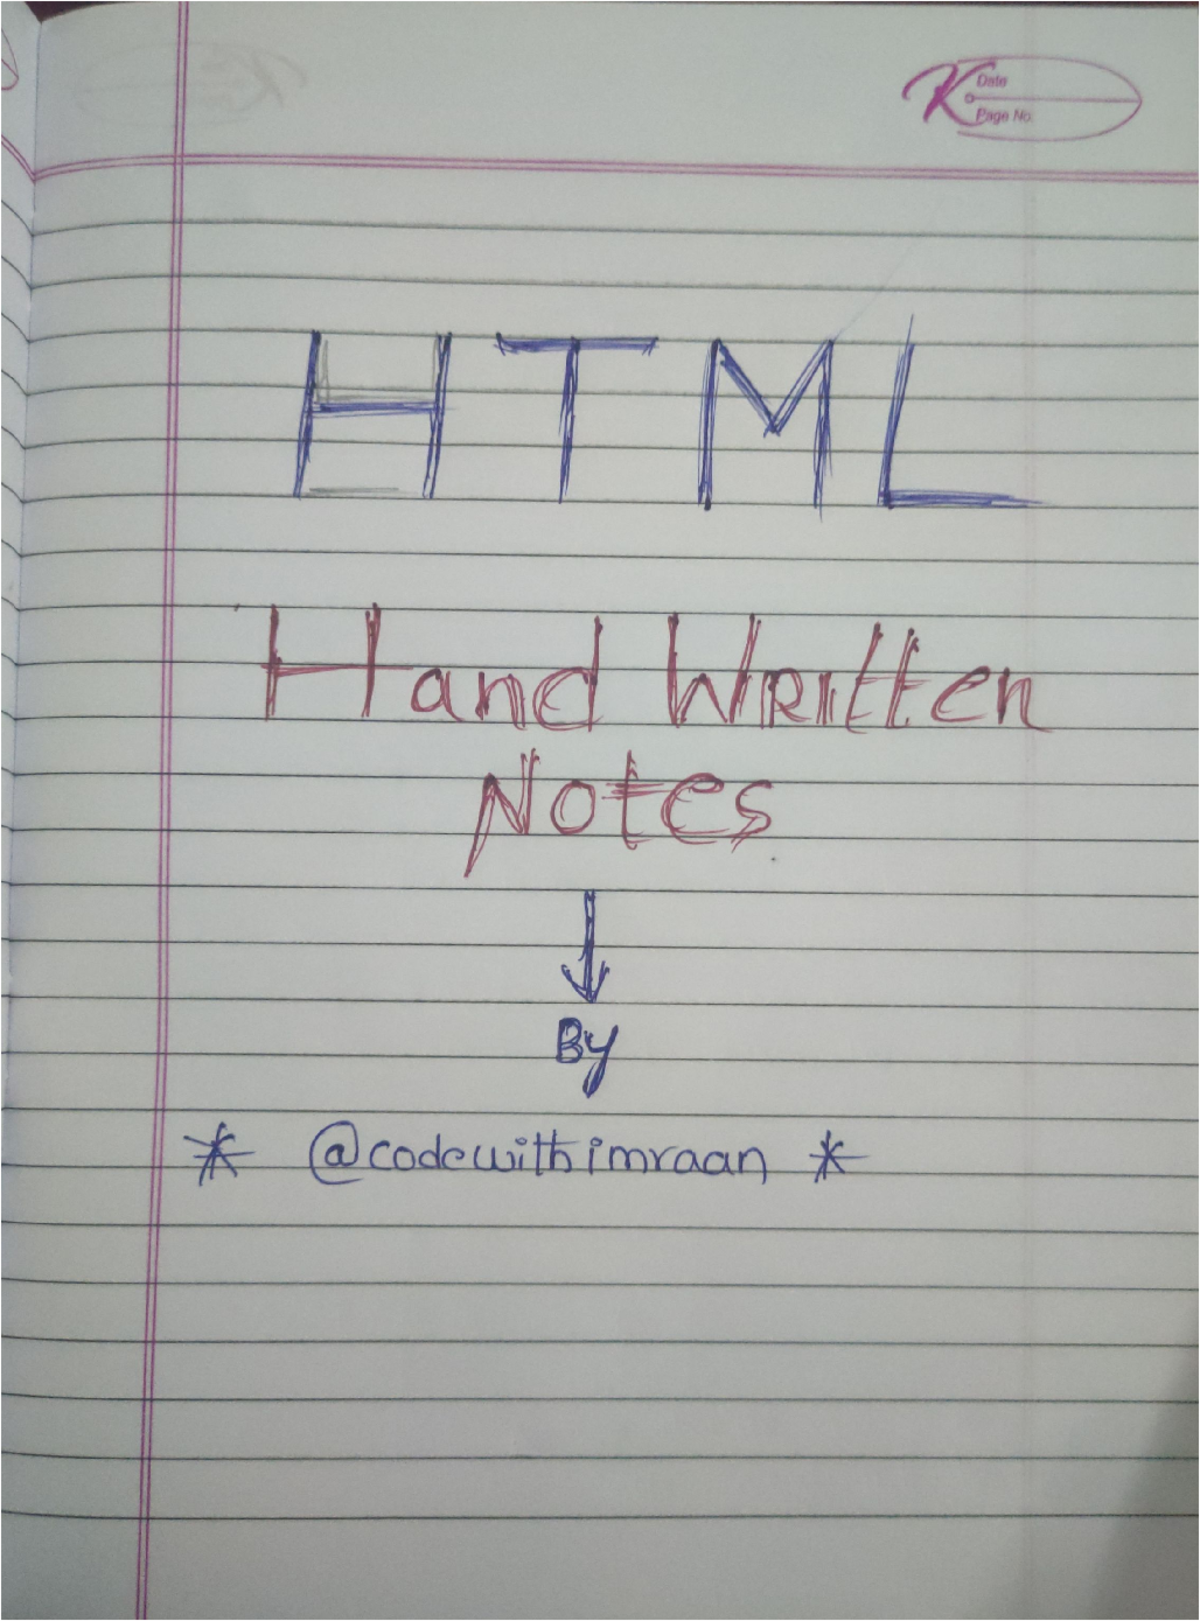 K Date
Page No.
HTML
Hand Written
Notes
↓
By
* @codewithimraan *